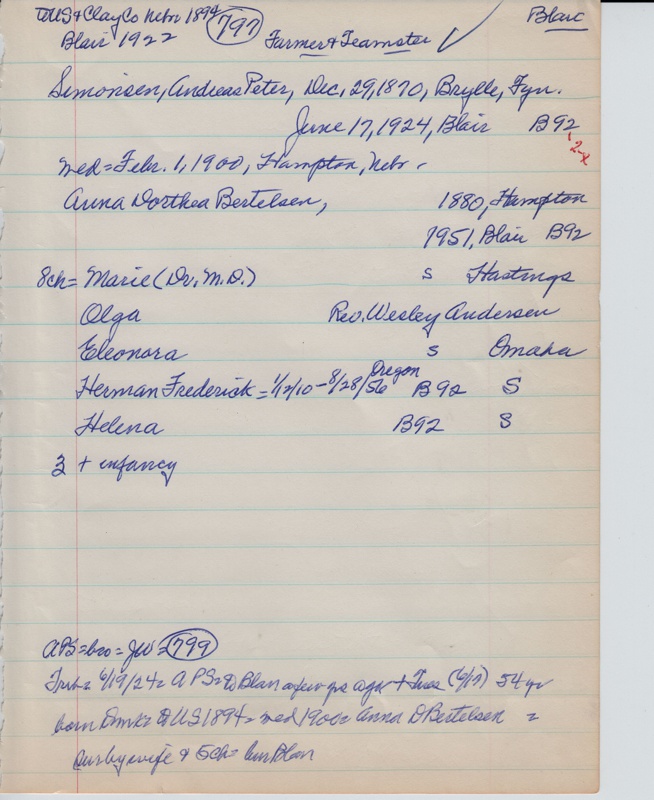 to US & Clay Co Nebr 1894 797 Blair
Blair 1922 Farmer & Teamster ✓
Simonsen, Andreas Peter, Dec. 29, 1870, Brylle, Fyn.
June 17, 1924, Blair B92
2x
med = Febr. 1, 1900, Hampton, Nebr.
Anna Dorthea Bertelsen, 1880, Hampton
1951, Blair B92
8ch = Marie (Dr. M.D.) s Hastings
Olga Rev. Wesley Andersen
Eleonora s Omaha
Herman Frederick = 1/12/10 - 8/28/56 Oregon B92 S
Helena B92 S
3 + infancy
APS = bro = JW = 799
6/19/24 = APS = to Blair a few yrs ago + Tues (6/17) 54 yr
born Dmk = to US 1894 = med 1900 = Anna D Bertelsen =
sur by wife & 5ch = bur Blair